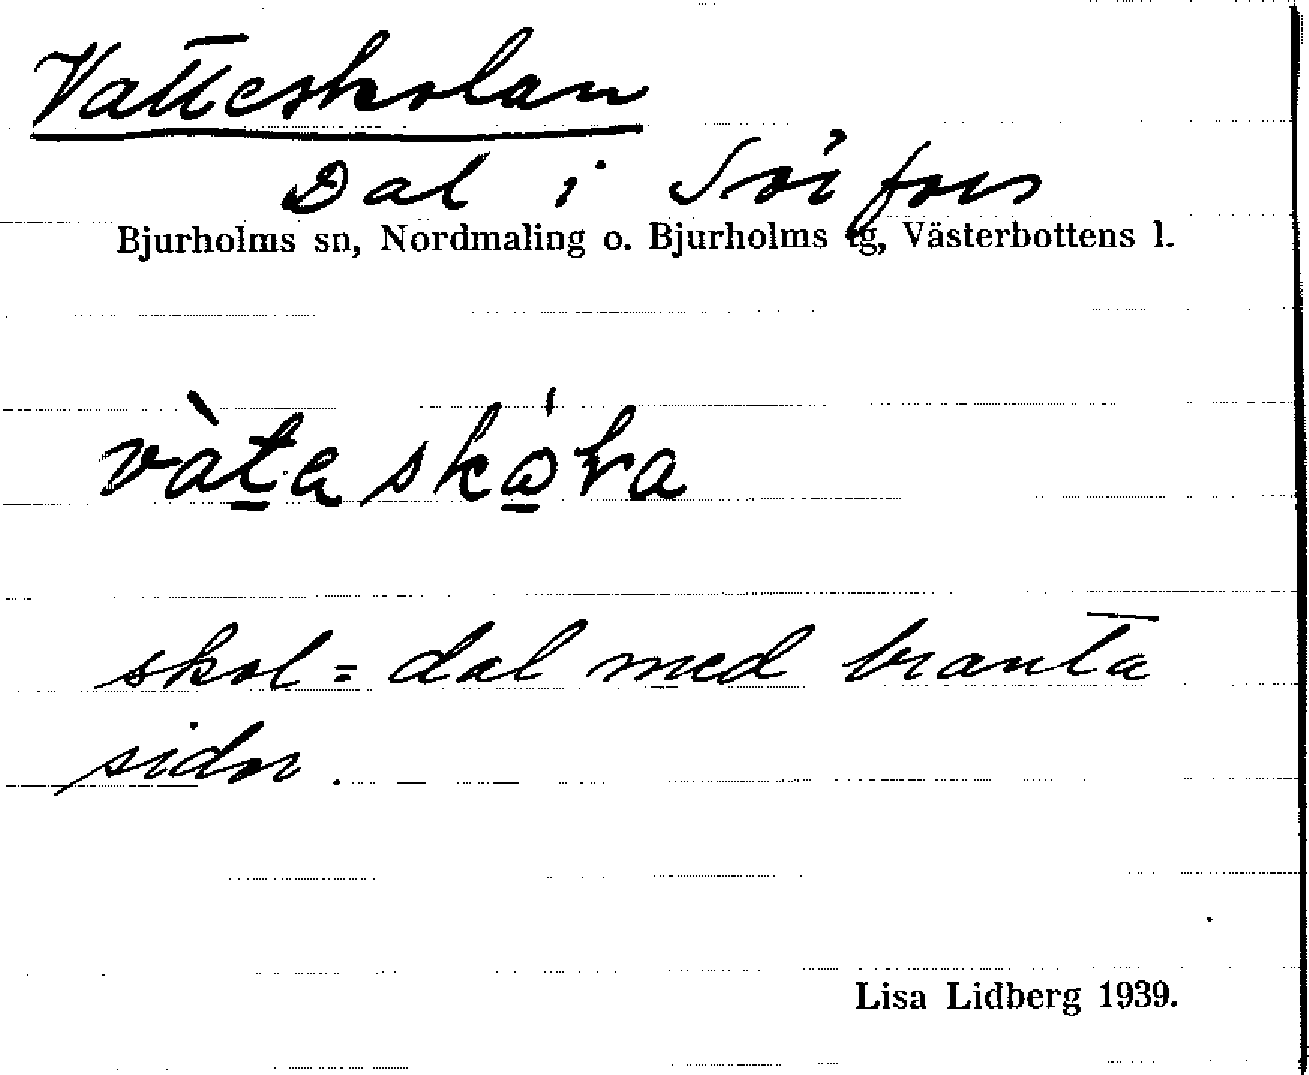 Vatteskolan
Dal i
Bjurholms sn, Nordmaling o. Bjurholms tg, Västerbottens l.
skol = dal med branta
sidor.
Lisa Lidberg 1939.